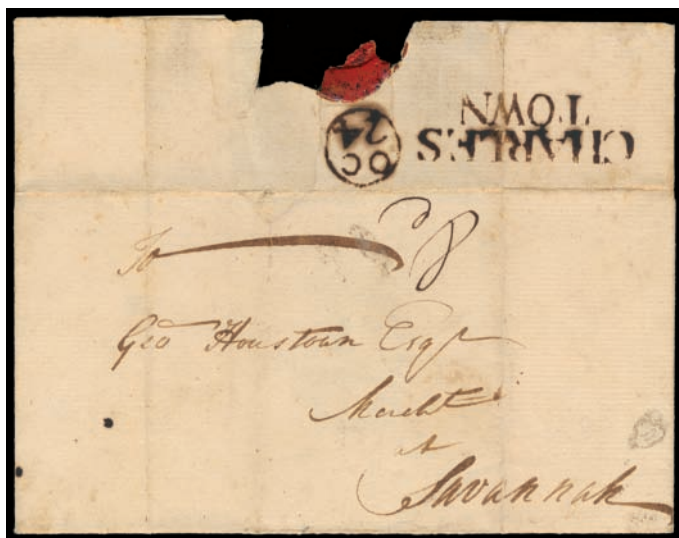 CHARLES
TOWN
OC
24
To
Geo Houstoun Esqr
Mercht
at
Savannah